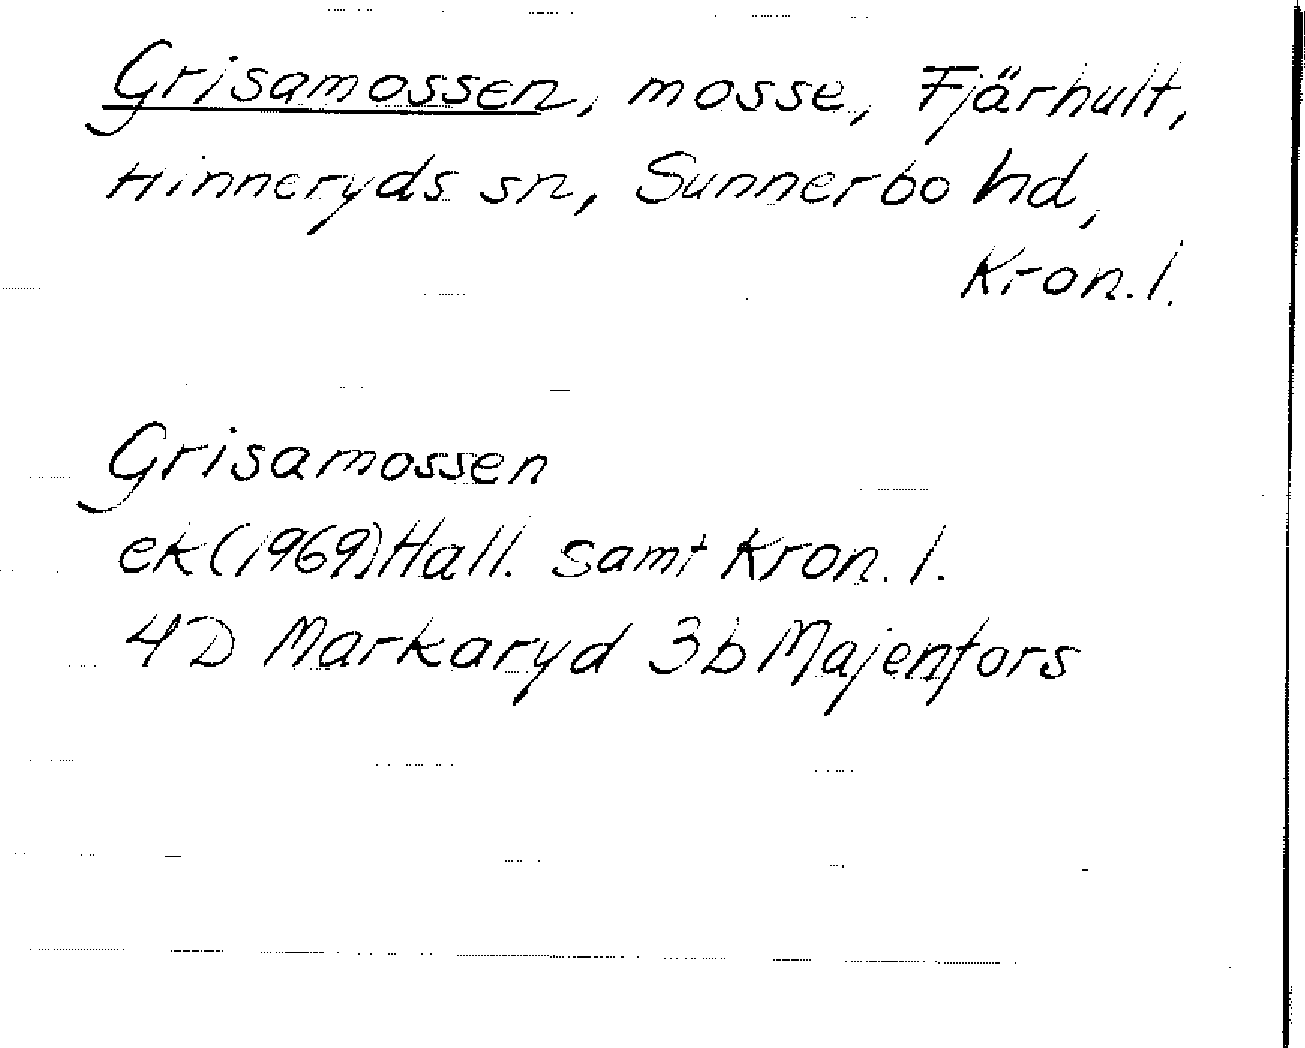 Grisamossen, mosse, Fjärhult,
Hinneryds sn, Sunnerbo hd,
Kron. l.
Grisamossen
ek (1969) Hall. samt Kron. l.
4D Markaryd 3b Majenfors